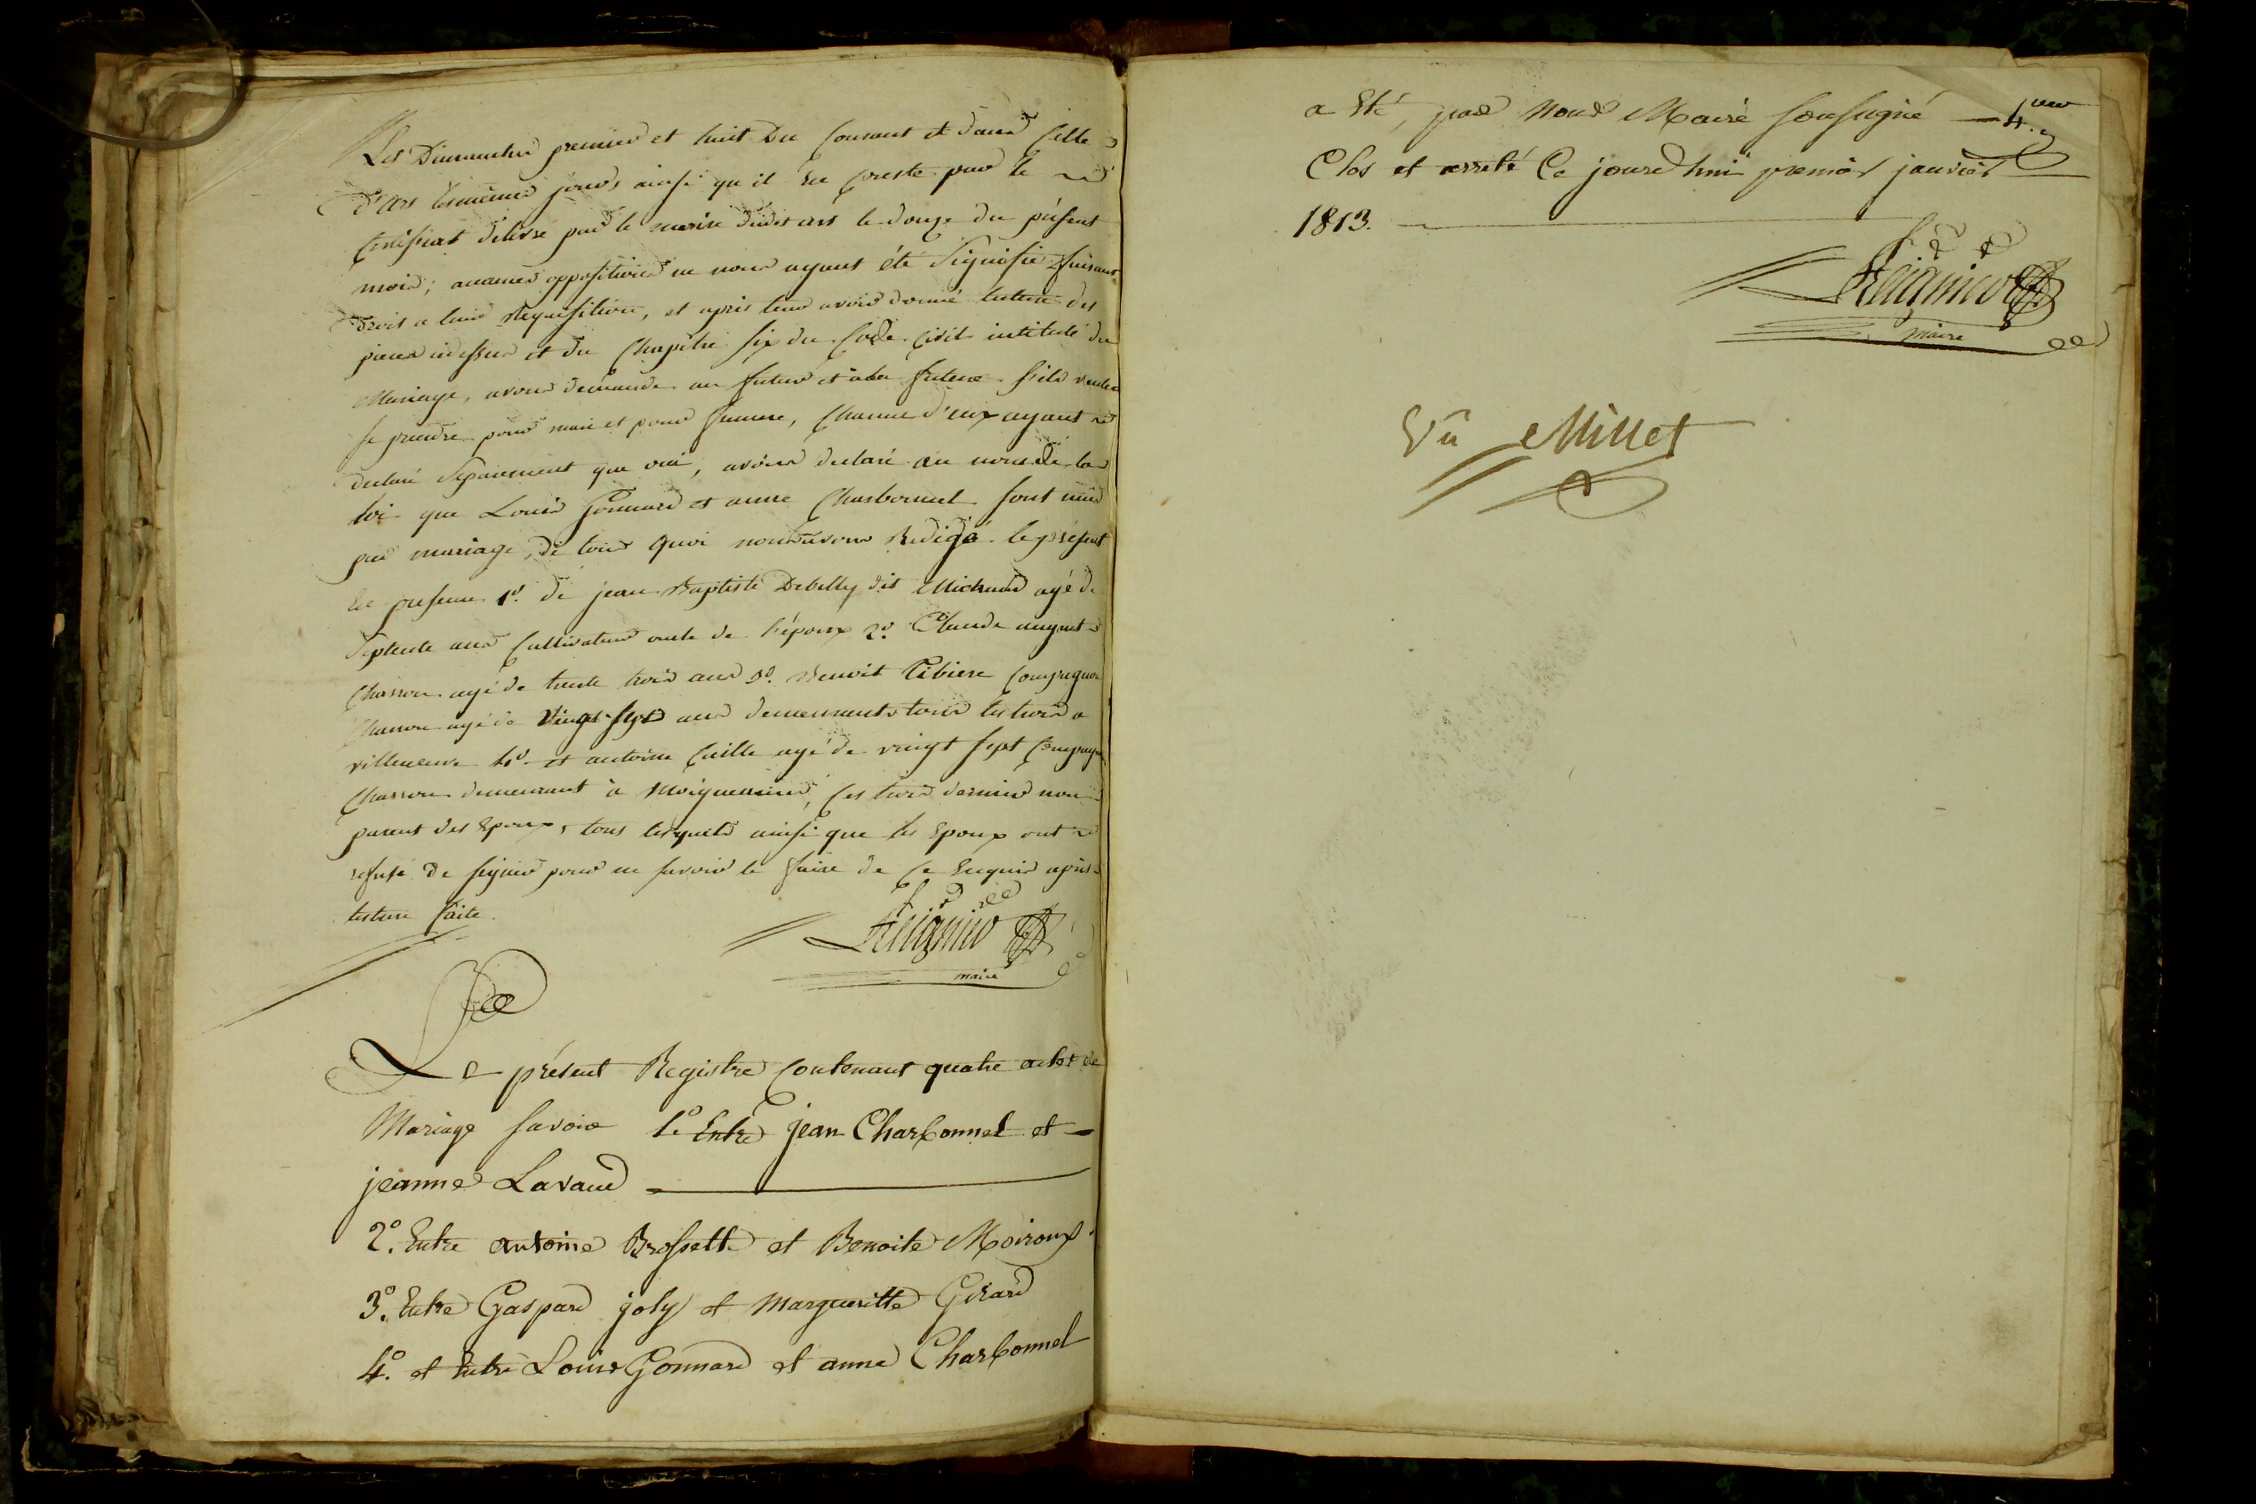 Les Dimanches premier et huit Du Courant et dans celle
d'ars les mêmes jours ainsi qu'il en Conste par le
Certificat délivré par le maire dudit ars le douze du présent
mois; aucunes oppositions ne nous ayant été signifié faisant
droit a leur Requisition, et après leur avoir donné lecture des
pièces ci dessus et du Chapitre six du Code Civil intitulé du
Mariage, avons demandé au futur et à la future s'ils veulent
se prendre pour mari et pour femme, Chacun d'eux ayant
declaré séparement que oui, avons declaré au nom de la
loi que Louis Gonnard et anne Charbonnet sont unis
par mariage, de tout quoi nous avons Redigé le présent
En presence 1º. de jean Baptiste Debilly dit Michaud agé de
septente ans Cultivateur oncle de l'époux 2º. Claude
Charron agé de trente trois ans 3º. Benoit Tibiere Compagnon
Charron agé de vingt sept ans demeurants tous les trois a
villeneuve 4º. et antoine Cuille agé de vingt sept Compagnon
Charron demeurant à Moigneneins, Ces trois derniers non
parent des Epoux, tous lesquels ainsi que les Epoux ont
refusé de signer pour ne savoir le faire de Ce Enquis après
lecture faite.
maire
Le présent Registre Contenant quatre actes de
Mariage Savoir 1º Entre jean Charbonnet et
jeanne Lavaud
2º. Entre antoine Brossette et Benoite Moiroux.
3º. Entre Gaspard joly et Margueritte Girard
4º. et Entre Louis Gonnard et anne Charbonnet
a Eté, par Nous Maire soussigné
Clos et arreté Ce jourd'hui premier janvier
1813.
maire
Vû Millet